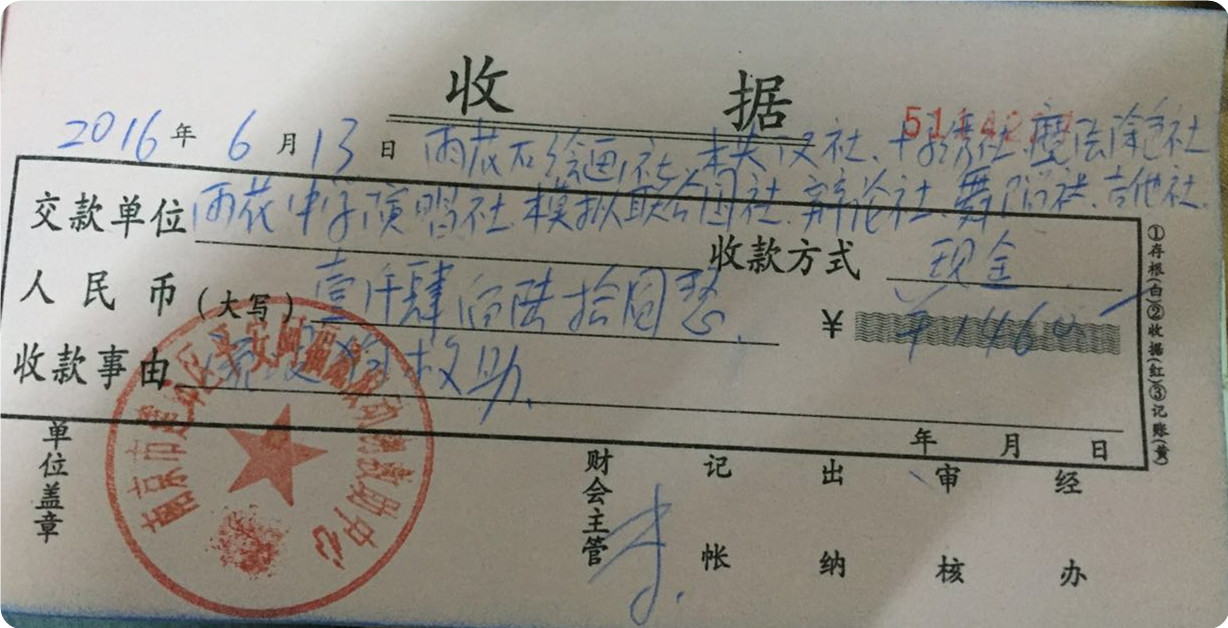 收据
2016年6月13日 雨花石绘画社、模
交款单位 雨花中学演唱社、模拟联合国社、辩论社、舞蹈社、吉他社、
收款方式 现金
人民币(大写) 壹仟肆佰陆拾圆整
¥ ¥1460
收款事由 流浪狗救助、
年 月 日
①存根(白)②收据(红)③记账(黄)
单位盖章
财会主管
记帐
出纳
审核
经办